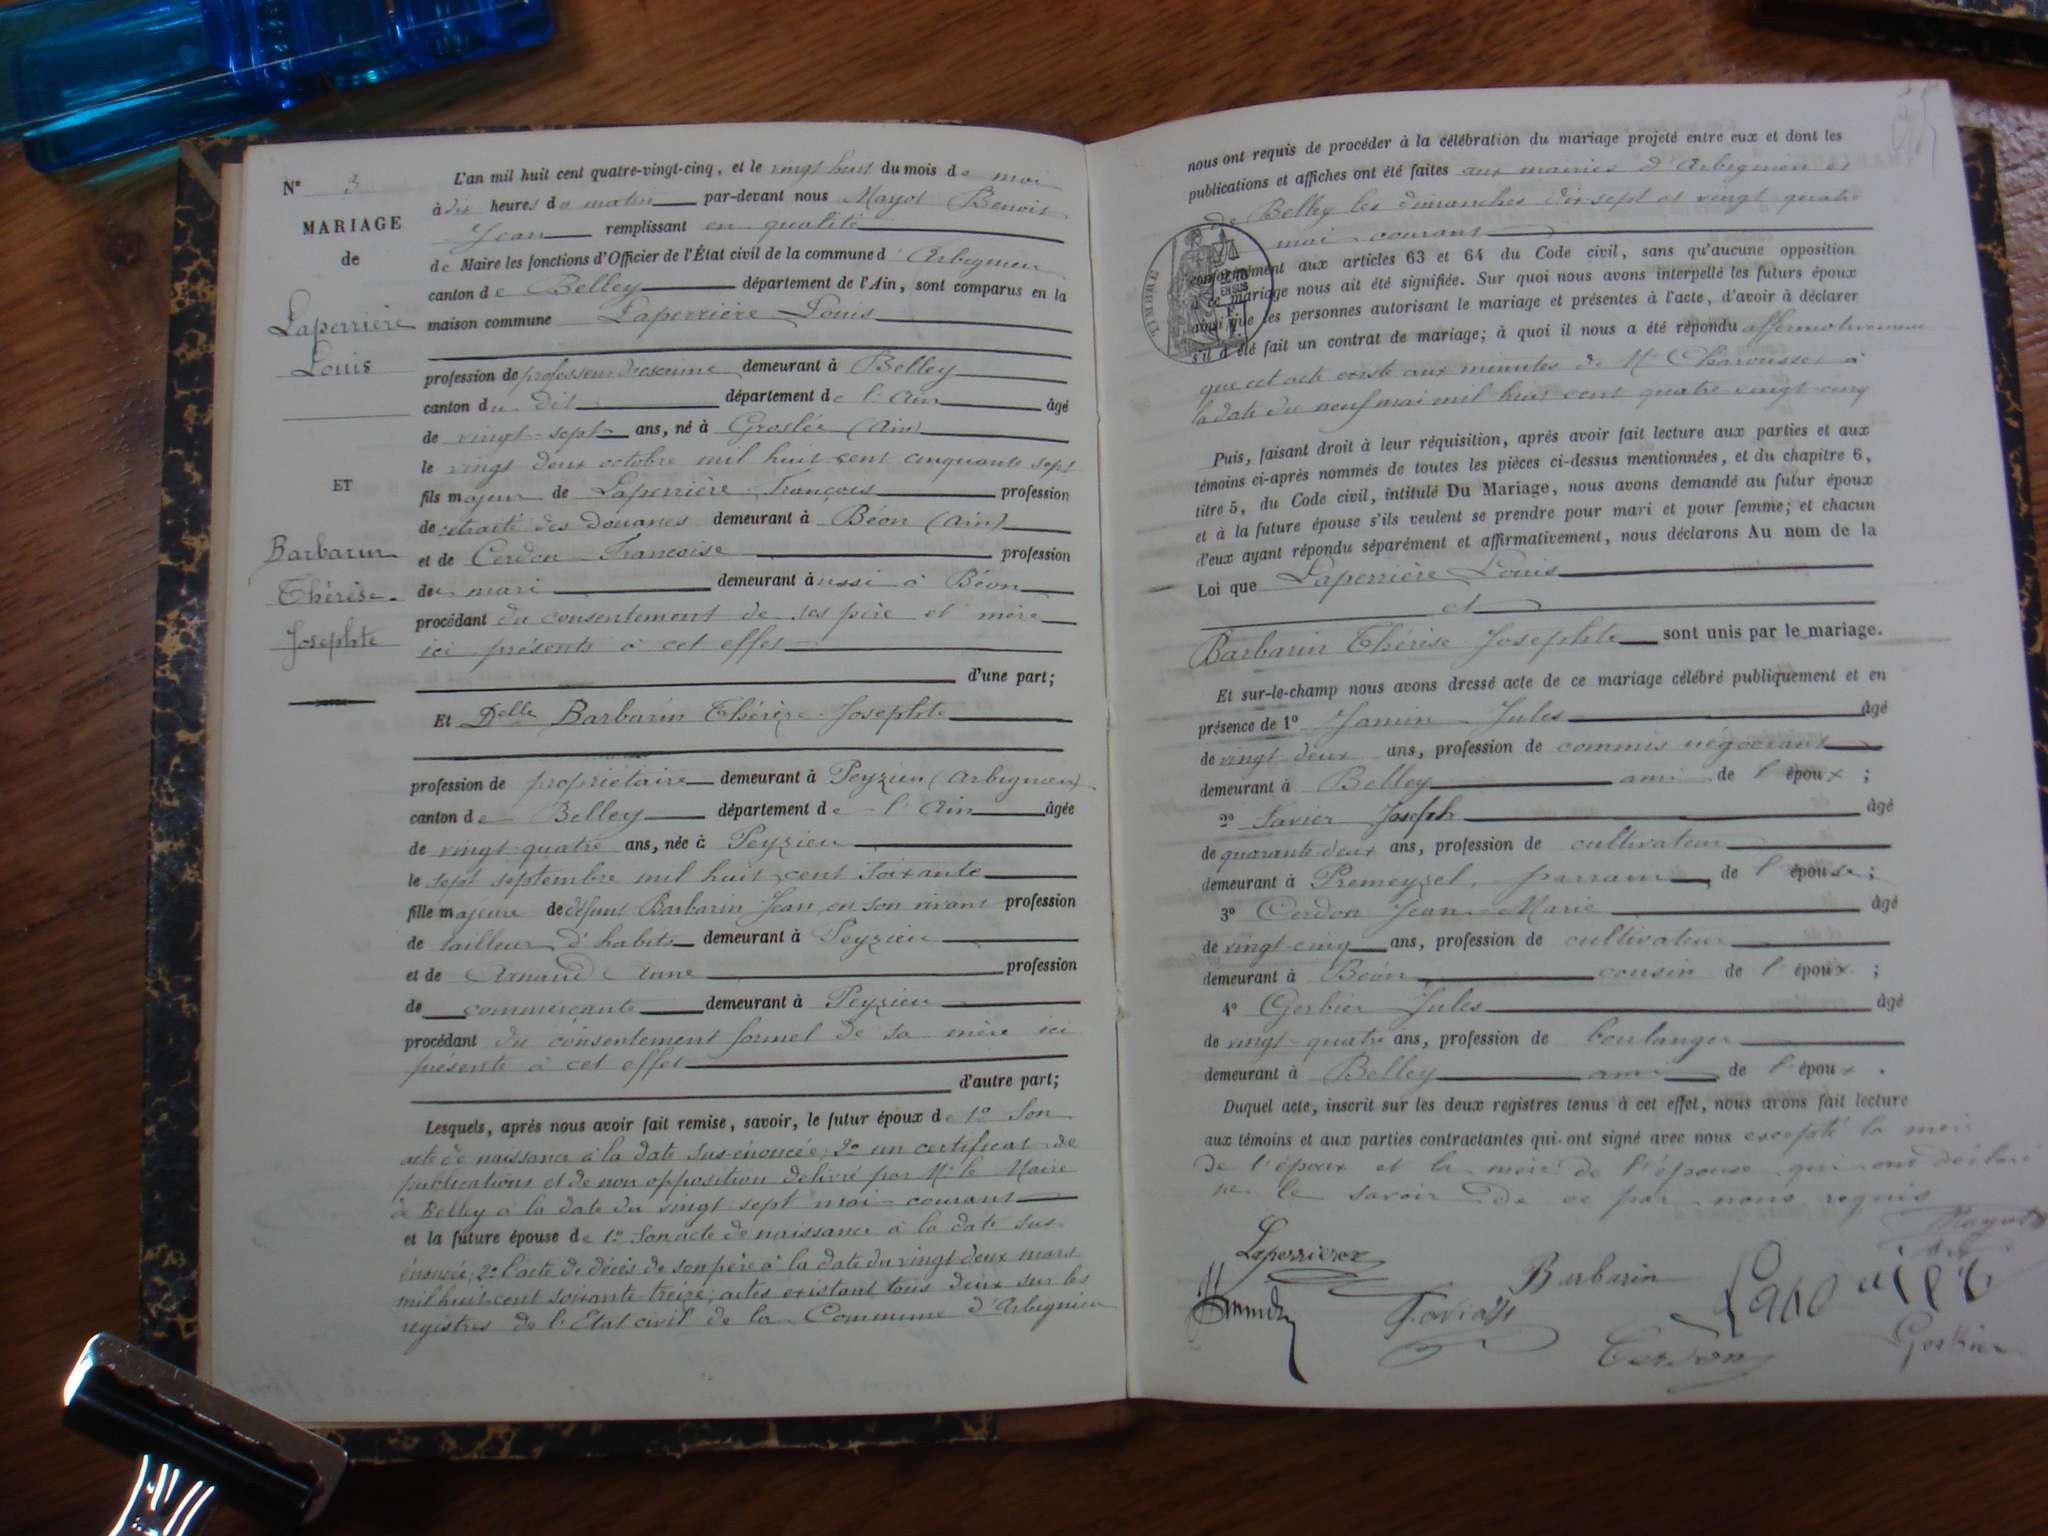 N° 3
MARIAGE
de
Laperrière
Louis
ET
Barbarin
Thérèse
Josephte
L'an mil huit cent quatre-vingt-cinq, et le vingt huit du mois de mai
à dix heures du matin par-devant nous Mayot Benoit
Jean remplissant en qualité
de Maire les fonctions d'Officier de l'État civil de la commune d'Arbignieu
canton de Belley département de l'Ain, sont comparus en la
maison commune Laperrière Louis
profession de professeur d'escrime demeurant à Belley
canton du dit département de l'Ain âgé
de vingt-sept ans, né à Groslée (Ain)
le vingt deux octobre mil huit cent cinquante sept
fils majeur de Laperrière François profession
de retraité des Douanes demeurant à Béon (Ain)
et de Cerdon Françoise profession
de mari demeurant aussi à Béon
procédant du consentement de ses père et mère
ici présents à cet effet
d'une part;
Et Delle Barbarin Thérèse Josephte
profession de propriétaire demeurant à Peyzieu (Arbignieu)
canton de Belley département de l'Ain âgée
de vingt-quatre ans, née à Peyzieu
le sept septembre mil huit cent soixante
fille majeure de défunt Barbarin Jean en son vivant profession
de tailleur d'habits demeurant à Peyzieu
et de Arnaud Anne profession
de commerçante demeurant à Peyzieu
procédant du consentement formel de sa mère ici
présente à cet effet
d'autre part;
Lesquels, après nous avoir fait remise, savoir, le futur époux de 1° Son
acte de naissance à la date sus-énoncée; 2° un certificat de
publications et de non opposition délivré par Mr le Maire
de Belley à la date du vingt sept mai courant
et la future épouse de 1° Son acte de naissance à la date sus
énoncée; 2° l'acte de décès de son père à la date du vingt-deux mars
mil huit cent soixante-treize; actes existant tous deux sur les
registres de l'Etat civil de la Commune d'Arbignieu
nous ont requis de procéder à la célébration du mariage projeté entre eux et dont les
publications et affiches ont été faites aux mairies d'Arbignieu et
de Belley les dimanches dix-sept et vingt quatre
mai courant
conformément aux articles 63 et 64 du Code civil, sans qu'aucune opposition
à ce mariage nous ait été signifiée. Sur quoi nous avons interpellé les futurs époux
ainsi que les personnes autorisant le mariage et présentes à l'acte, d'avoir à déclarer
s'il a été fait un contrat de mariage; à quoi il nous a été répondu affirmativement
que cet acte existe aux minutes de Me Charousset à
la date du neuf mai mil huit cent quatre-vingt-cinq
TIMBRE
Puis, faisant droit à leur réquisition, après avoir fait lecture aux parties et aux
témoins ci-après nommés de toutes les pièces ci-dessus mentionnées, et du chapitre 6,
titre 5, du Code civil, intitulé Du Mariage, nous avons demandé au futur époux
et à la future épouse s'ils veulent se prendre pour mari et pour femme; et chacun
d'eux ayant répondu séparément et affirmativement, nous déclarons Au nom de la
Loi que Laperrière Louis
et
Barbarin Thérèse Josephte sont unis par le mariage.
Et sur-le-champ nous avons dressé acte de ce mariage célébré publiquement et en
présence de 1° Jamin Jules âgé
de vingt deux ans, profession de commis négociant
demeurant à Belley ami de l'époux;
2° Savier Joseph âgé
de quarante-deux ans, profession de cultivateur
demeurant à Premeyzel, parrain de l'épouse;
3° Cerdon Jean-Marie âgé
de vingt-cinq ans, profession de cultivateur
demeurant à Béon cousin de l'époux;
4° Gerbier Jules âgé
de vingt-quatre ans, profession de boulanger
demeurant à Belley ami de l'époux.
Duquel acte, inscrit sur les deux registres tenus à cet effet, nous avons fait lecture
aux témoins et aux parties contractantes qui ont signé avec nous excepté la mère
de l'époux et la mère de l'épouse qui ont déclaré
ne le savoir de ce par nous requis
Mayot
Laperrière
Barbarin
Cerdon
Gerbier